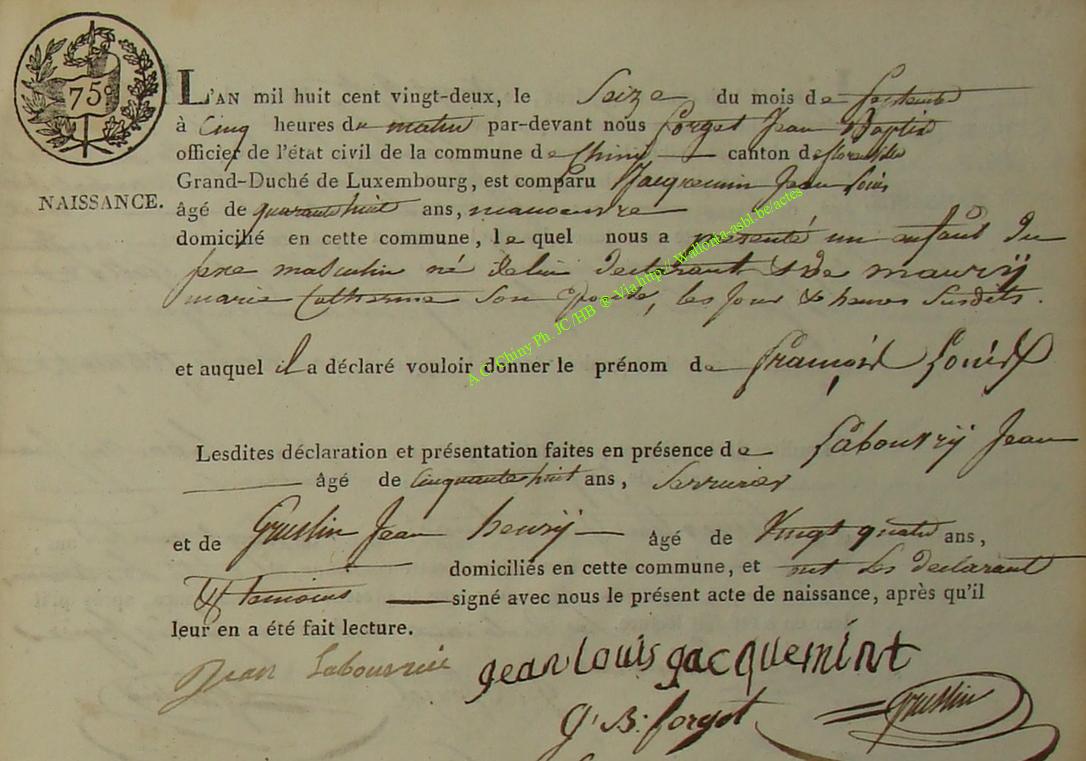 75c
NAISSANCE.
L'AN mil huit cent vingt-deux, le Seize du mois de Septembre
à Cinq heures du matin par-devant nous Forget Jean Baptiste
officier de l'état civil de la commune de Chiny canton de florenville
Grand-Duché de Luxembourg, est comparu Jacquemin Jean Louis
âgé de quarante huit ans, manoeuvre
domicilié en cette commune, le quel nous a présenté un enfant du
sexe masculin né de lui declarant & de maurÿ
marie Catherine Son épouse, les Jour & heures Susdits.
et auquel il a déclaré vouloir donner le prénom de François Louis
Lesdites déclaration et présentation faites en présence de Labourÿ Jean
âgé de cinquante huit ans, Serrurier
et de Gruslin Jean henrÿ âgé de Vingt quatre ans,
domiciliés en cette commune, et ont Les declarant
& temoins signé avec nous le présent acte de naissance, après qu'il
leur en a été fait lecture.
Jean Labourie jean louis jacquemint
J B: forget gruslin
A G Chiny Ph. JC/HB ® Via http://Wallonia-asbl.be/actes